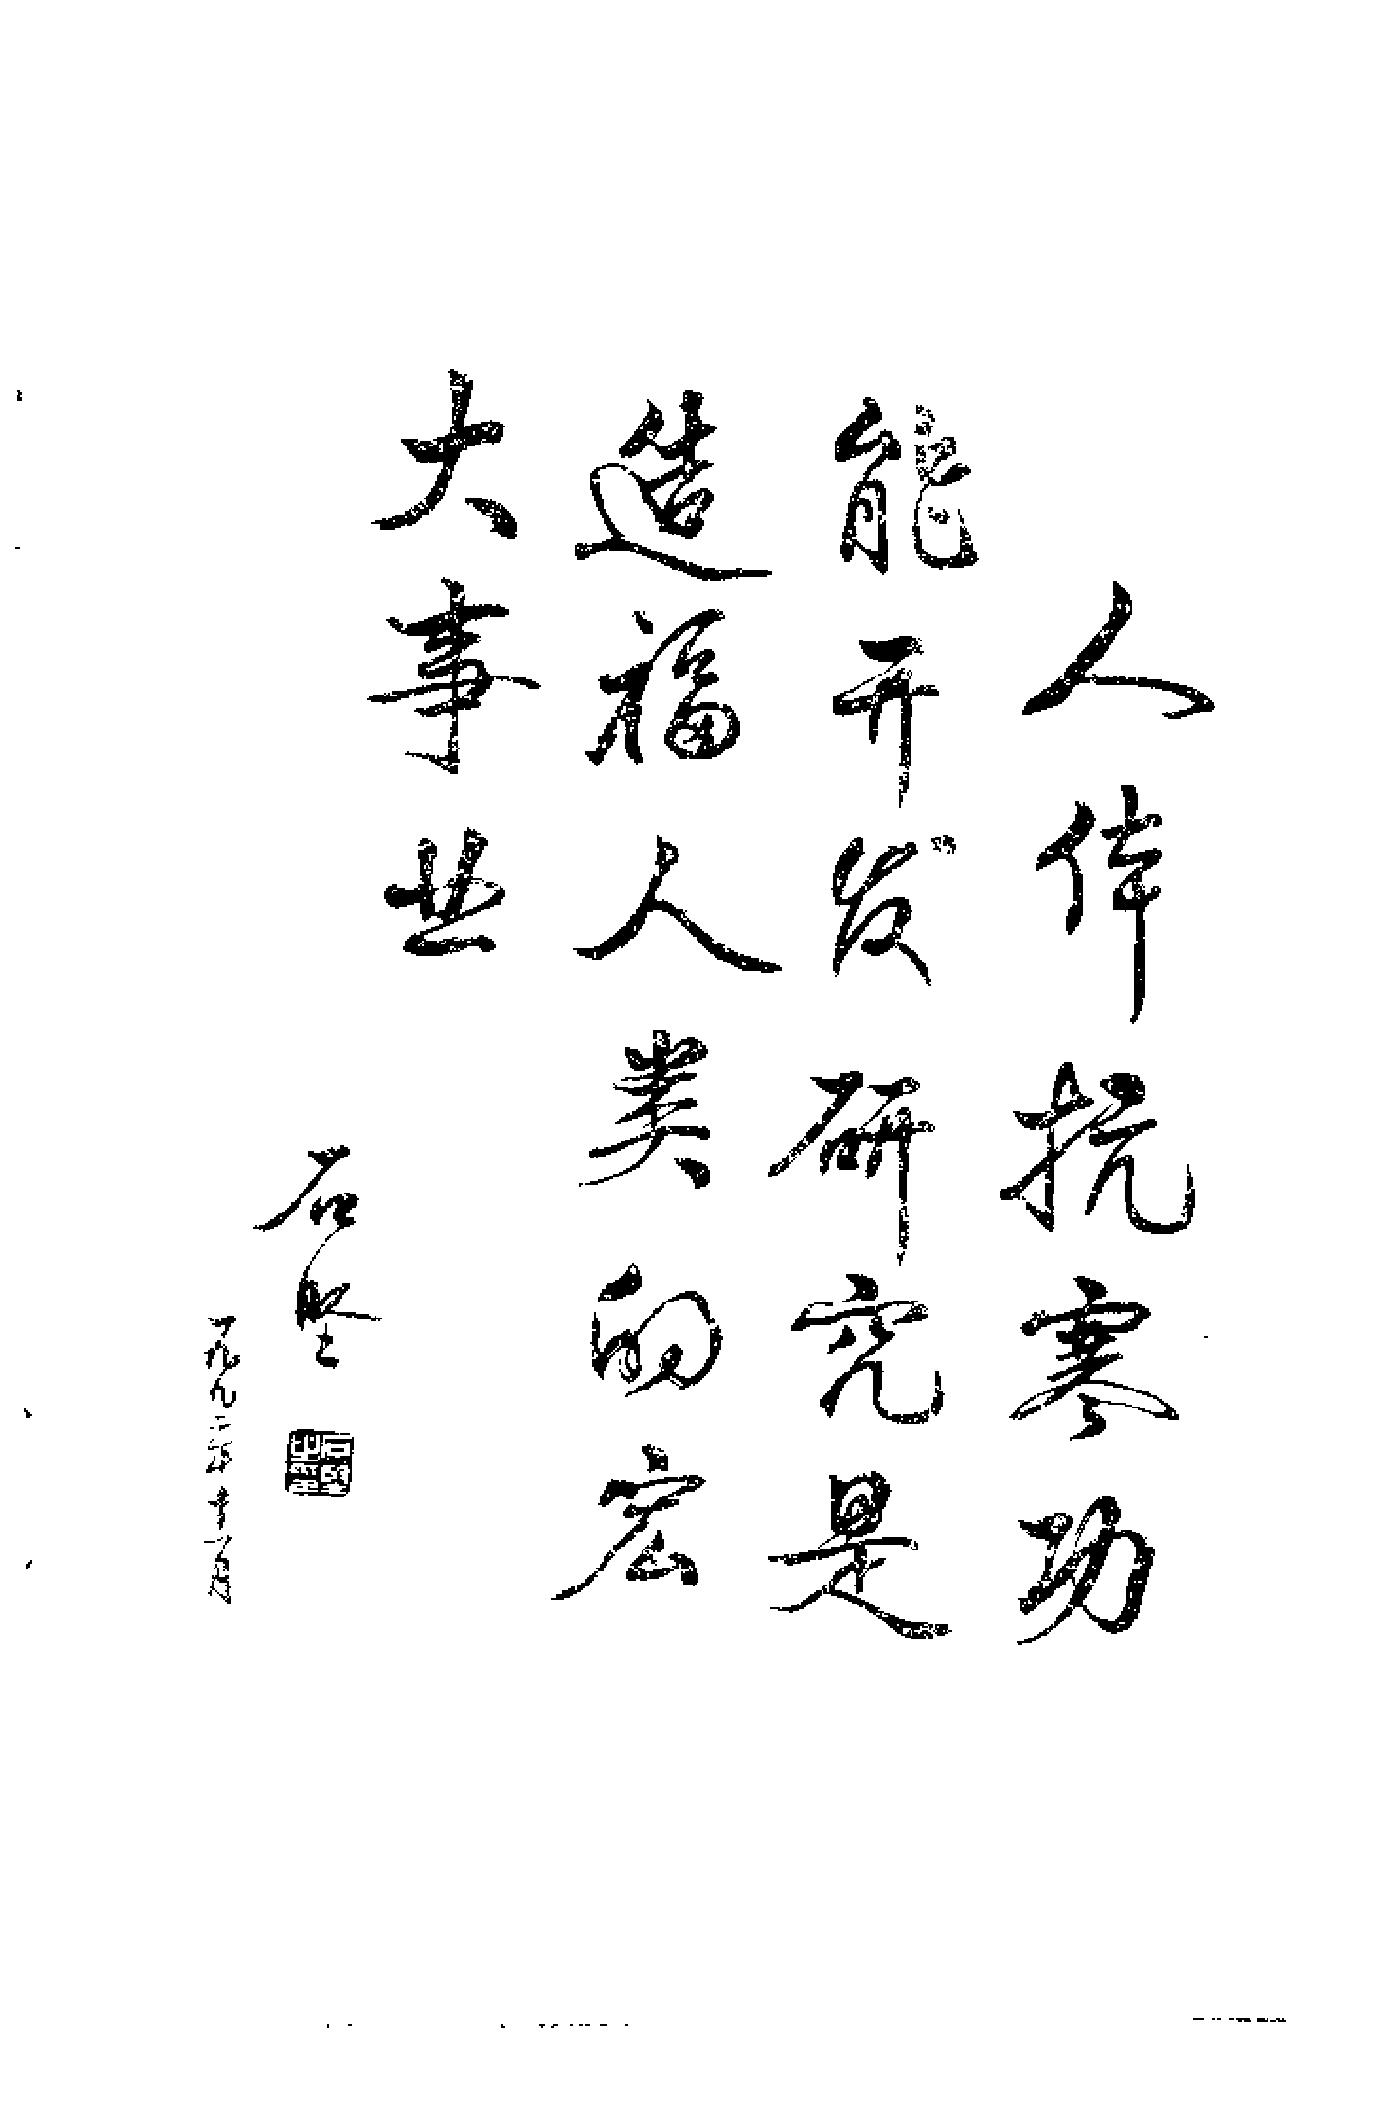 人体抗寒功
能开发研究是
造福人类的宏
大事业
石坚
一九九二年十一月